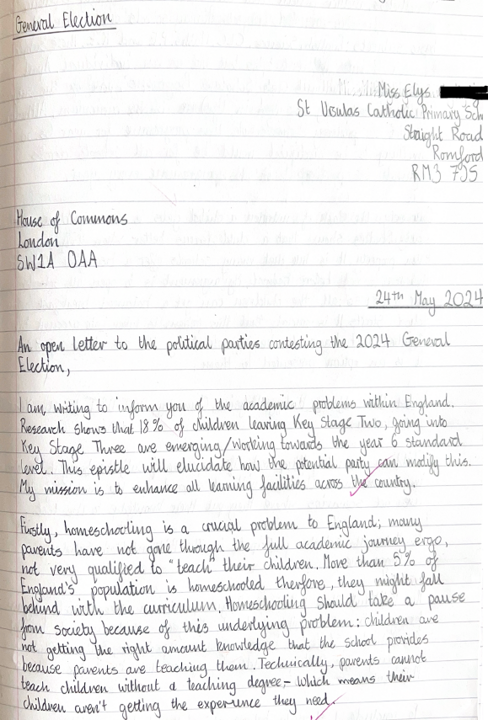 General Election
Miss Elys
St Ursulas Catholic Primary Sch
Straight Road
Romford
RM3 7JS
House of Commons
London
SW1A 0AA
24th May 2024
An open letter to the political parties contesting the 2024 General
Election,
I am writing to inform you of the academic problems within England.
Research shows that 18% of children leaving Key Stage Two, going into
Key Stage Three are emerging/working towards the year 6 standard
level. This epistle will elucidate how the potential party can modify this.
My mission is to enhance all learning facilities across the country.
Firstly, homeschooling is a crucial problem to England; many
parents have not gone through the full academic journey ergo,
not very qualified to "teach" their children. More than 5% of
England's population is homeschooled therefore, they might fall
behind with the curriculum. Homeschooling should take a pause
from society because of this underlying problem: children are
not getting the right amount knowledge that the school provides
because parents are teaching them. Technically, parents cannot
teach children without a teaching degree,- which means their
children aren't getting the experience they need.